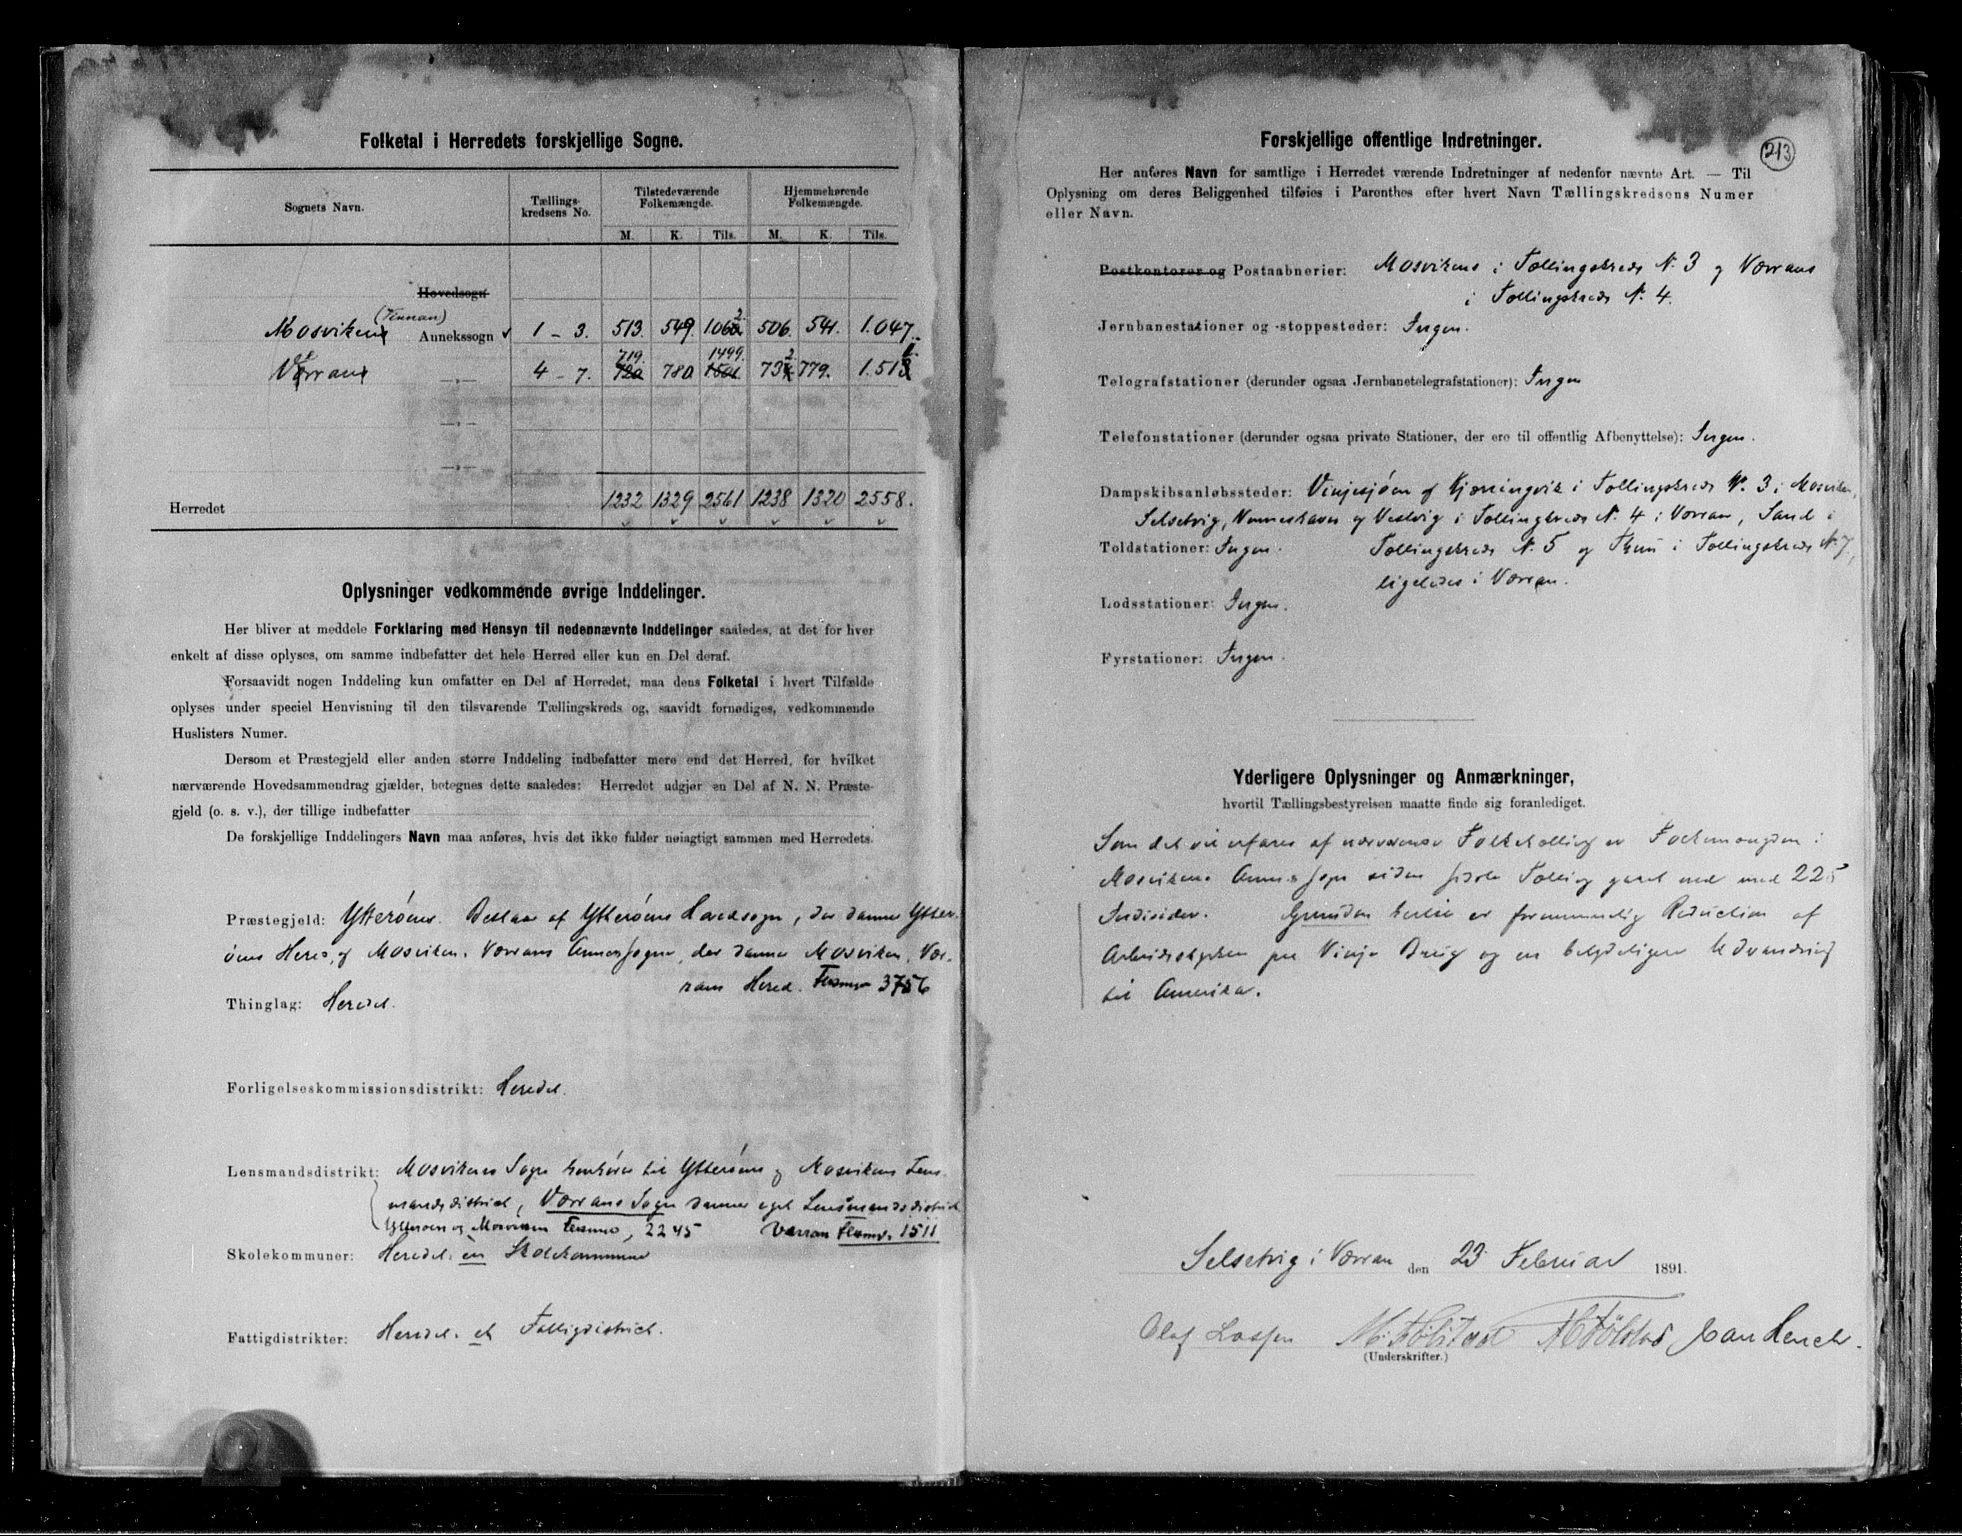 Folketal i Herredets forskjellige Sogne.
Sognets Navn. Tællings-kredsens No. Tilstedeværende Folkemængde. Hjemmehørende Folkemængde.
M. K. Tils. M. K. Tils.
Hovedsogn
(Vinnan)
Mosviken Annekssogn 1 - 3. 513. 549. 1062. 506. 541. 1.047.
Værran „ 4 - 7. 719. 780 1499. 732. 779. 1.511.
„
„
Herredet 1232 1329 2561 1238 1320 2558.
Oplysninger vedkommende øvrige Inddelinger.
Her bliver at meddele Forklaring med Hensyn til nedennævnte Inddelinger saaledes, at det for hver
enkelt af disse oplyses, om samme indbefatter det hele Herred eller kun en Del deraf.
Forsaavidt nogen Inddeling kun omfatter en Del af Herredet, maa dens Folketal i hvert Tilfælde
oplyses under speciel Henvisning til den tilsvarende Tællingskreds og, saavidt fornødiges, vedkommende
Huslisters Numer.
Dersom et Præstegjeld eller anden større Inddeling indbefatter mere end det Herred, for hvilket
nærværende Hovedsammendrag gjælder, betegnes dette saaledes: Herredet udgjør en Del af N. N. Præste-
gjeld (o. s. v.), der tillige indbefatter
De forskjellige Inddelingers Navn maa anføres, hvis det ikke falder nøiagtigt sammen med Herredets.
Præstegjeld: Ytterøens. Bestaar af Ytterøens Hovedsogn, der danner Ytter-
øens Hered, og Mosviken, Værrans Annexsogne, der danner Mosviken, Vær-
rans Hered. Flkmgn 3756
Thinglag: Heredet.
Forligelseskommissionsdistrikt: Heredet.
Lensmandsdistrikt: Mosvikens Sogn henhører til Ytterøens og Mosvikens Lens-
mandsdistrict, Værrans Sogn danner eget Lensmandsdistrict
Ytterøen og Mosviken 2245 Værran 1511
Skolekommuner: Heredet en Skolekommune
Fattigdistrikter: Heredet et Fattigdistrict.
213
Forskjellige offentlige Indretninger.
Her anføres Navn for samtlige i Herredet værende Indretninger af nedenfor nævnte Art. — Til
Oplysning om deres Beliggenhed tilføies i Parenthes efter hvert Navn Tællingskredsens Numer
eller Navn.
Postkontorer og Postaabnerier: Mosvikens i Tællingskreds N. 3 og Værrans
i Tællingskreds N. 4.
Jernbanestationer og -stoppesteder: Ingen.
Telegrafstationer (derunder ogsaa Jernbanetelegrafstationer): Ingen
Telefonstationer (derunder ogsaa private Stationer, der ere til offentlig Afbenyttelse): Ingen.
Dampskibsanløbssteder: Vinjesjøen og Kjærringvik i Tællingskreds N. 3 i Mosviken,
Selsetvig, Venneshavn og Vestvig i Tællingkreds N. 4 i Værran, Sand i
Toldstationer: Ingen. Tællingskreds N. 5 og i Tællingskreds N. 7,
ligeledes i Værran.
Lodsstationer: Ingen.
Fyrstationer: Ingen.
Yderligere Oplysninger og Anmærkninger,
hvortil Tællingsbestyrelsen maatte finde sig foranlediget.
Som det vil erfares af nærværende Folketælling er Folkemængden i
Mosvikens Annexsogn siden sidste Tælling gaaet ned med 225
Individer. Grunden hertil er fornemmelig Reduction af
Arbeidsstyrken paa Vinje Brug og en betydeligere Udvandring
til Amerika.
Selsetvig i Værran den 23 Februar 1891.
Olaf Lassen
(Underskrifter.)